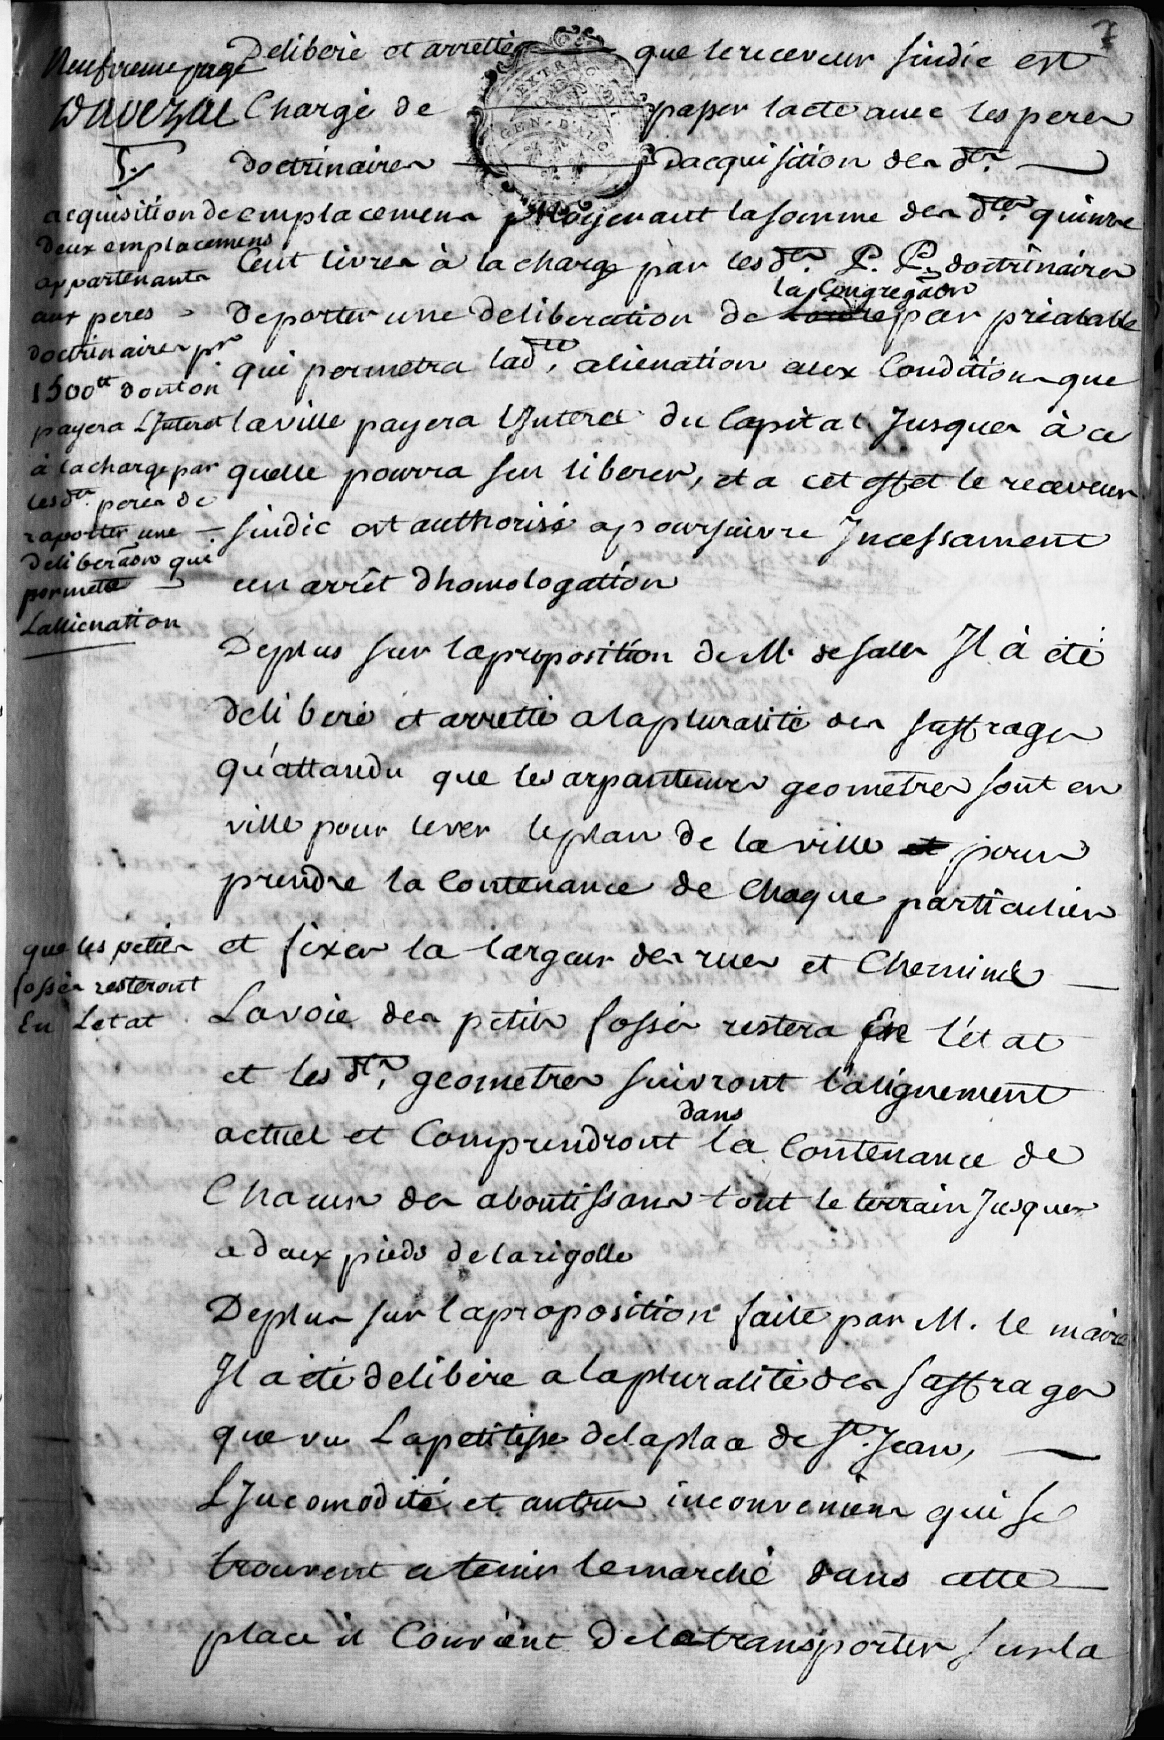 7
Neufvieme page
Davezac
Deliberé et arretté que le receveur sindic est
Chargé de passer lacte avec les peres
doctrinaires dacquisition des dts.
emplacemens moyenant la somme des dtes. quinze
Cent livres à la charge par les dts. P. P. doctrinaires
la Congregaõn
de porter une deliberation de par préalable
qui permetra ladte. alienation aux Conditions que
la ville payera l'Interet du Capital Jusques à ce
quelle pourra sen liberer, et a cet effet le receveur
sindic est authorisé a poursuivre Incessament
un arrêt dhomologation
acquisition de
deux emplacemens
appartenants
aux peres
doctrinaires pr
1500tt dont on
payera l'Interet
à la charge par
les dts. peres de
raporter une
deliberaõn qui
permete
Lallienation
De plus sur la proposition de M. de salles Jl à été
deliberé et arretté a la pluralité des suffrages
qu'attandu que les arpanteurs geometres sont en
ville pour lever le plan de la ville et pour
prendre la Contenance de Chaque particulier
et fixer la largeur des rues et Chemins
La voie des petits fossés restera En l'état
et les dts. geometres suivront l'alignement
dans
actuel et Comprendront la Contenance de
Chacun des aboutissans tout le terrain Jusques
a deux pieds de la rigolle
que les petits
fossés resteront
En L'etat
De plus sur la proposition faite par M. le maire
Jl a été delibéré a la pluralité des suffrages
que vu La petitesse de la place de St. Jean,
L'Incomodité et autres inconveniens qui se
trouvent a tenir le marché dans cette
place il Convient de le transporter sur la